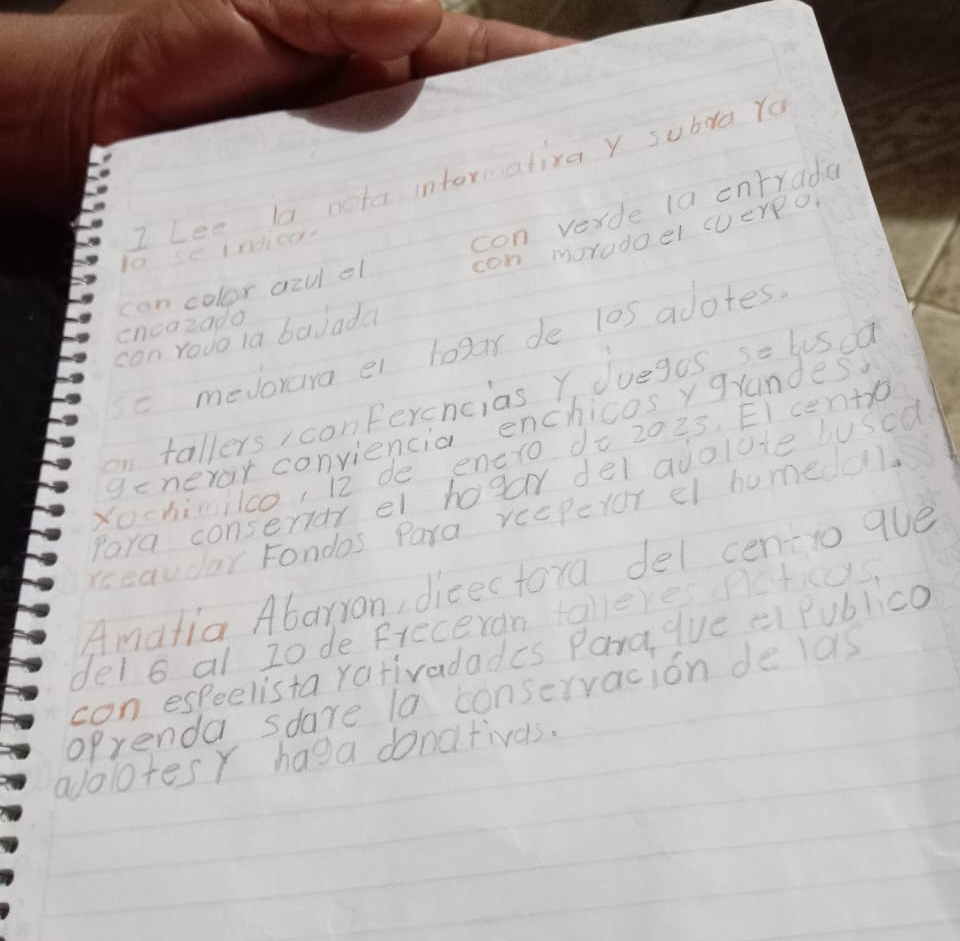 I Lee la nota informatira y subra ya
lo se indica.
con color azul el
encazado
con verde la entrada
con rovo la bajada
con morado el cuerpo.
se mejorara el hogar de los ajotes.
on tallers, conferencias y Juegos se busca
generar conviencia enchicos y grandes.
xochimilco, 12 de enero de 2023. El centro
para conserrar el hogar del ajolote busca
recaudar Fondos Para reeperar el humedal.
Amatia Abarron, dicectora del centro que
del 6 al 10 de freceran talleres, Platicas,
con espeelista yativadades Para, que el Publico
oprenda sdare la conservación de las
ajolotes y haga donativas.